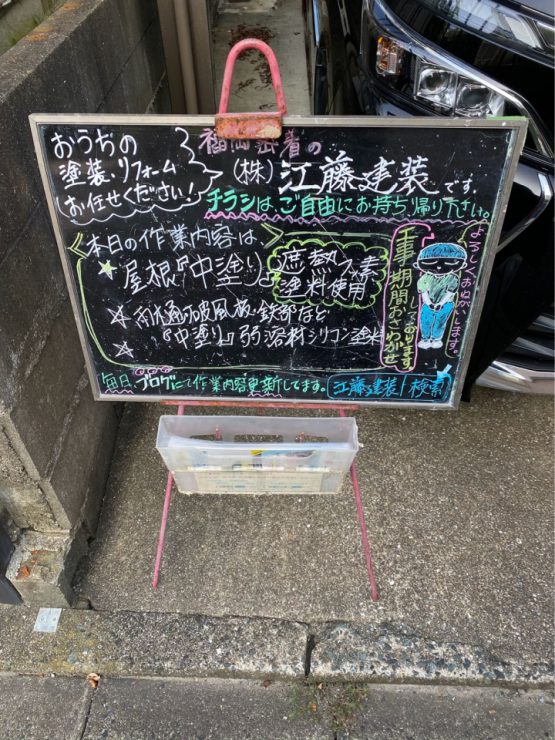 おうちの
塗装・リフォーム
お任せください!
福岡密着の
(株)江藤建装です。
チラシは、ご自由にお持ち帰り下さい。
本日の作業内容は、
★屋根『中塗り』
遮熱フッ素
塗料使用
☆雨樋・破風板・鉄部など
☆『中塗り』弱溶剤シリコン塗料
工事期間おさわがせ
しております
よろしくおねがいします。
毎日、ブログにて作業内容更新してます。
江藤建装 検索